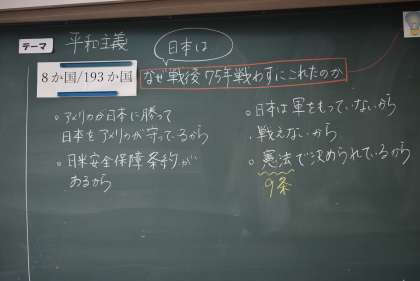 テーマ
平和主義
日本は
8か国/193か国
なぜ戦後75年戦わずにこれたのか
○アメリカが日本に勝って
日本をアメリカが守っているから
○日米安全保障条約が
あるから
○日本は軍をもっていないから
・戦えないから
○憲法で決められているから
9条